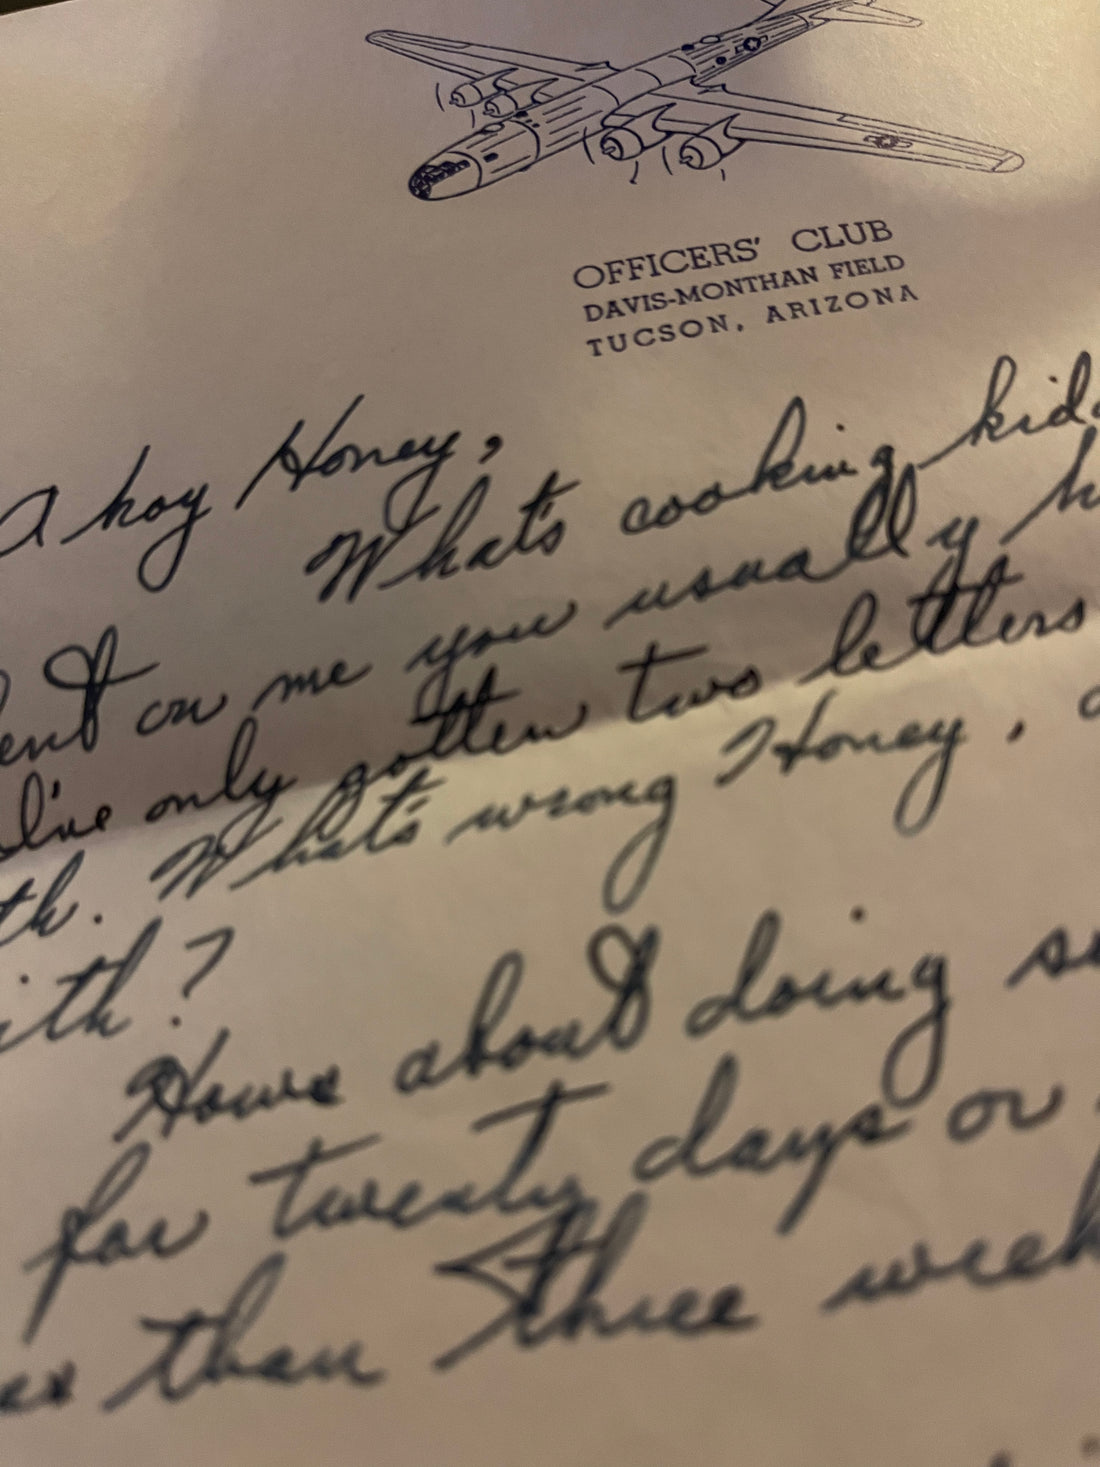 OFFICERS' CLUB
DAVIS-MONTHAN FIELD
TUCSON, ARIZONA
Ahoy Honey,
What's cooking kid
on me you usually
I've only gotten two letters
What's wrong Honey,
?
How's about doing
for twenty days or
than three week